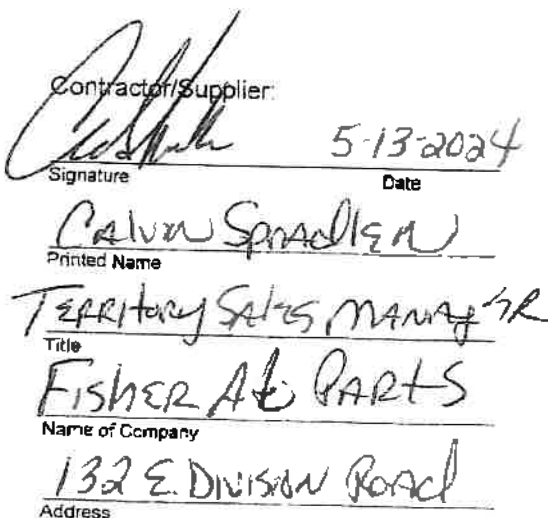 Contractor/Supplier:
5-13-2024
Signature Date
Calvin Spradlen
Printed Name
Territory Sales Manager
Title
Fisher Auto Parts
Name of Company
132 E. Division Road
Address